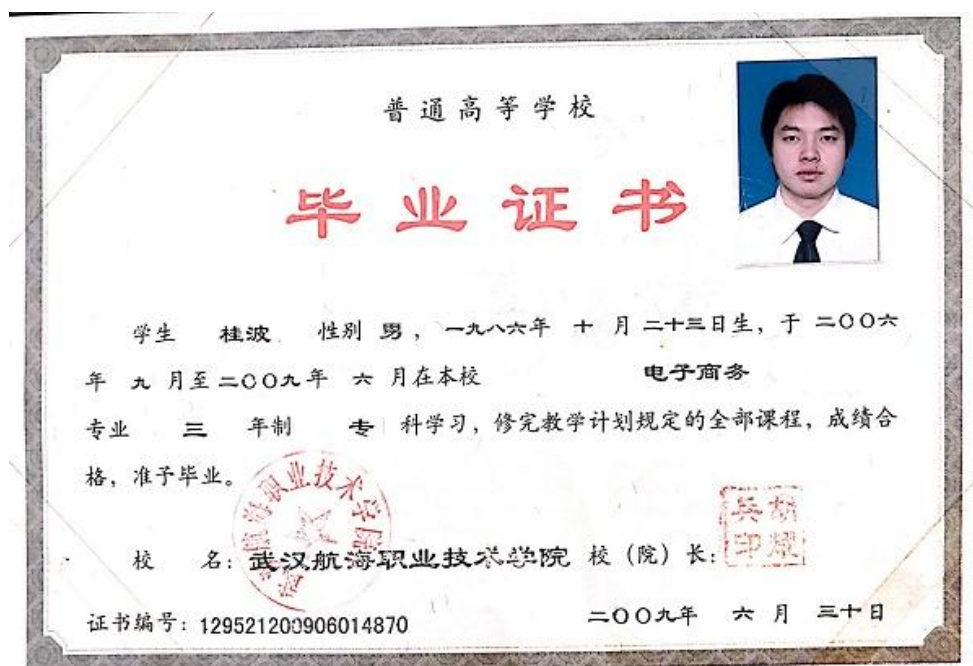 普通高等学校
毕业证书
学生 桂波 性别 男，一九八六年 十 月 二十三日生，于 二〇〇六
年 九 月至 二〇〇九年 六 月在本校 电子商务
专业 三 年制 专 科学习，修完教学计划规定的全部课程，成绩合
格，准予毕业。
武汉航海职业技术学院
校 名：武汉航海职业技术学院 校（院）长：
证书编号：129521200906014870 二〇〇九年 六 月 三十日